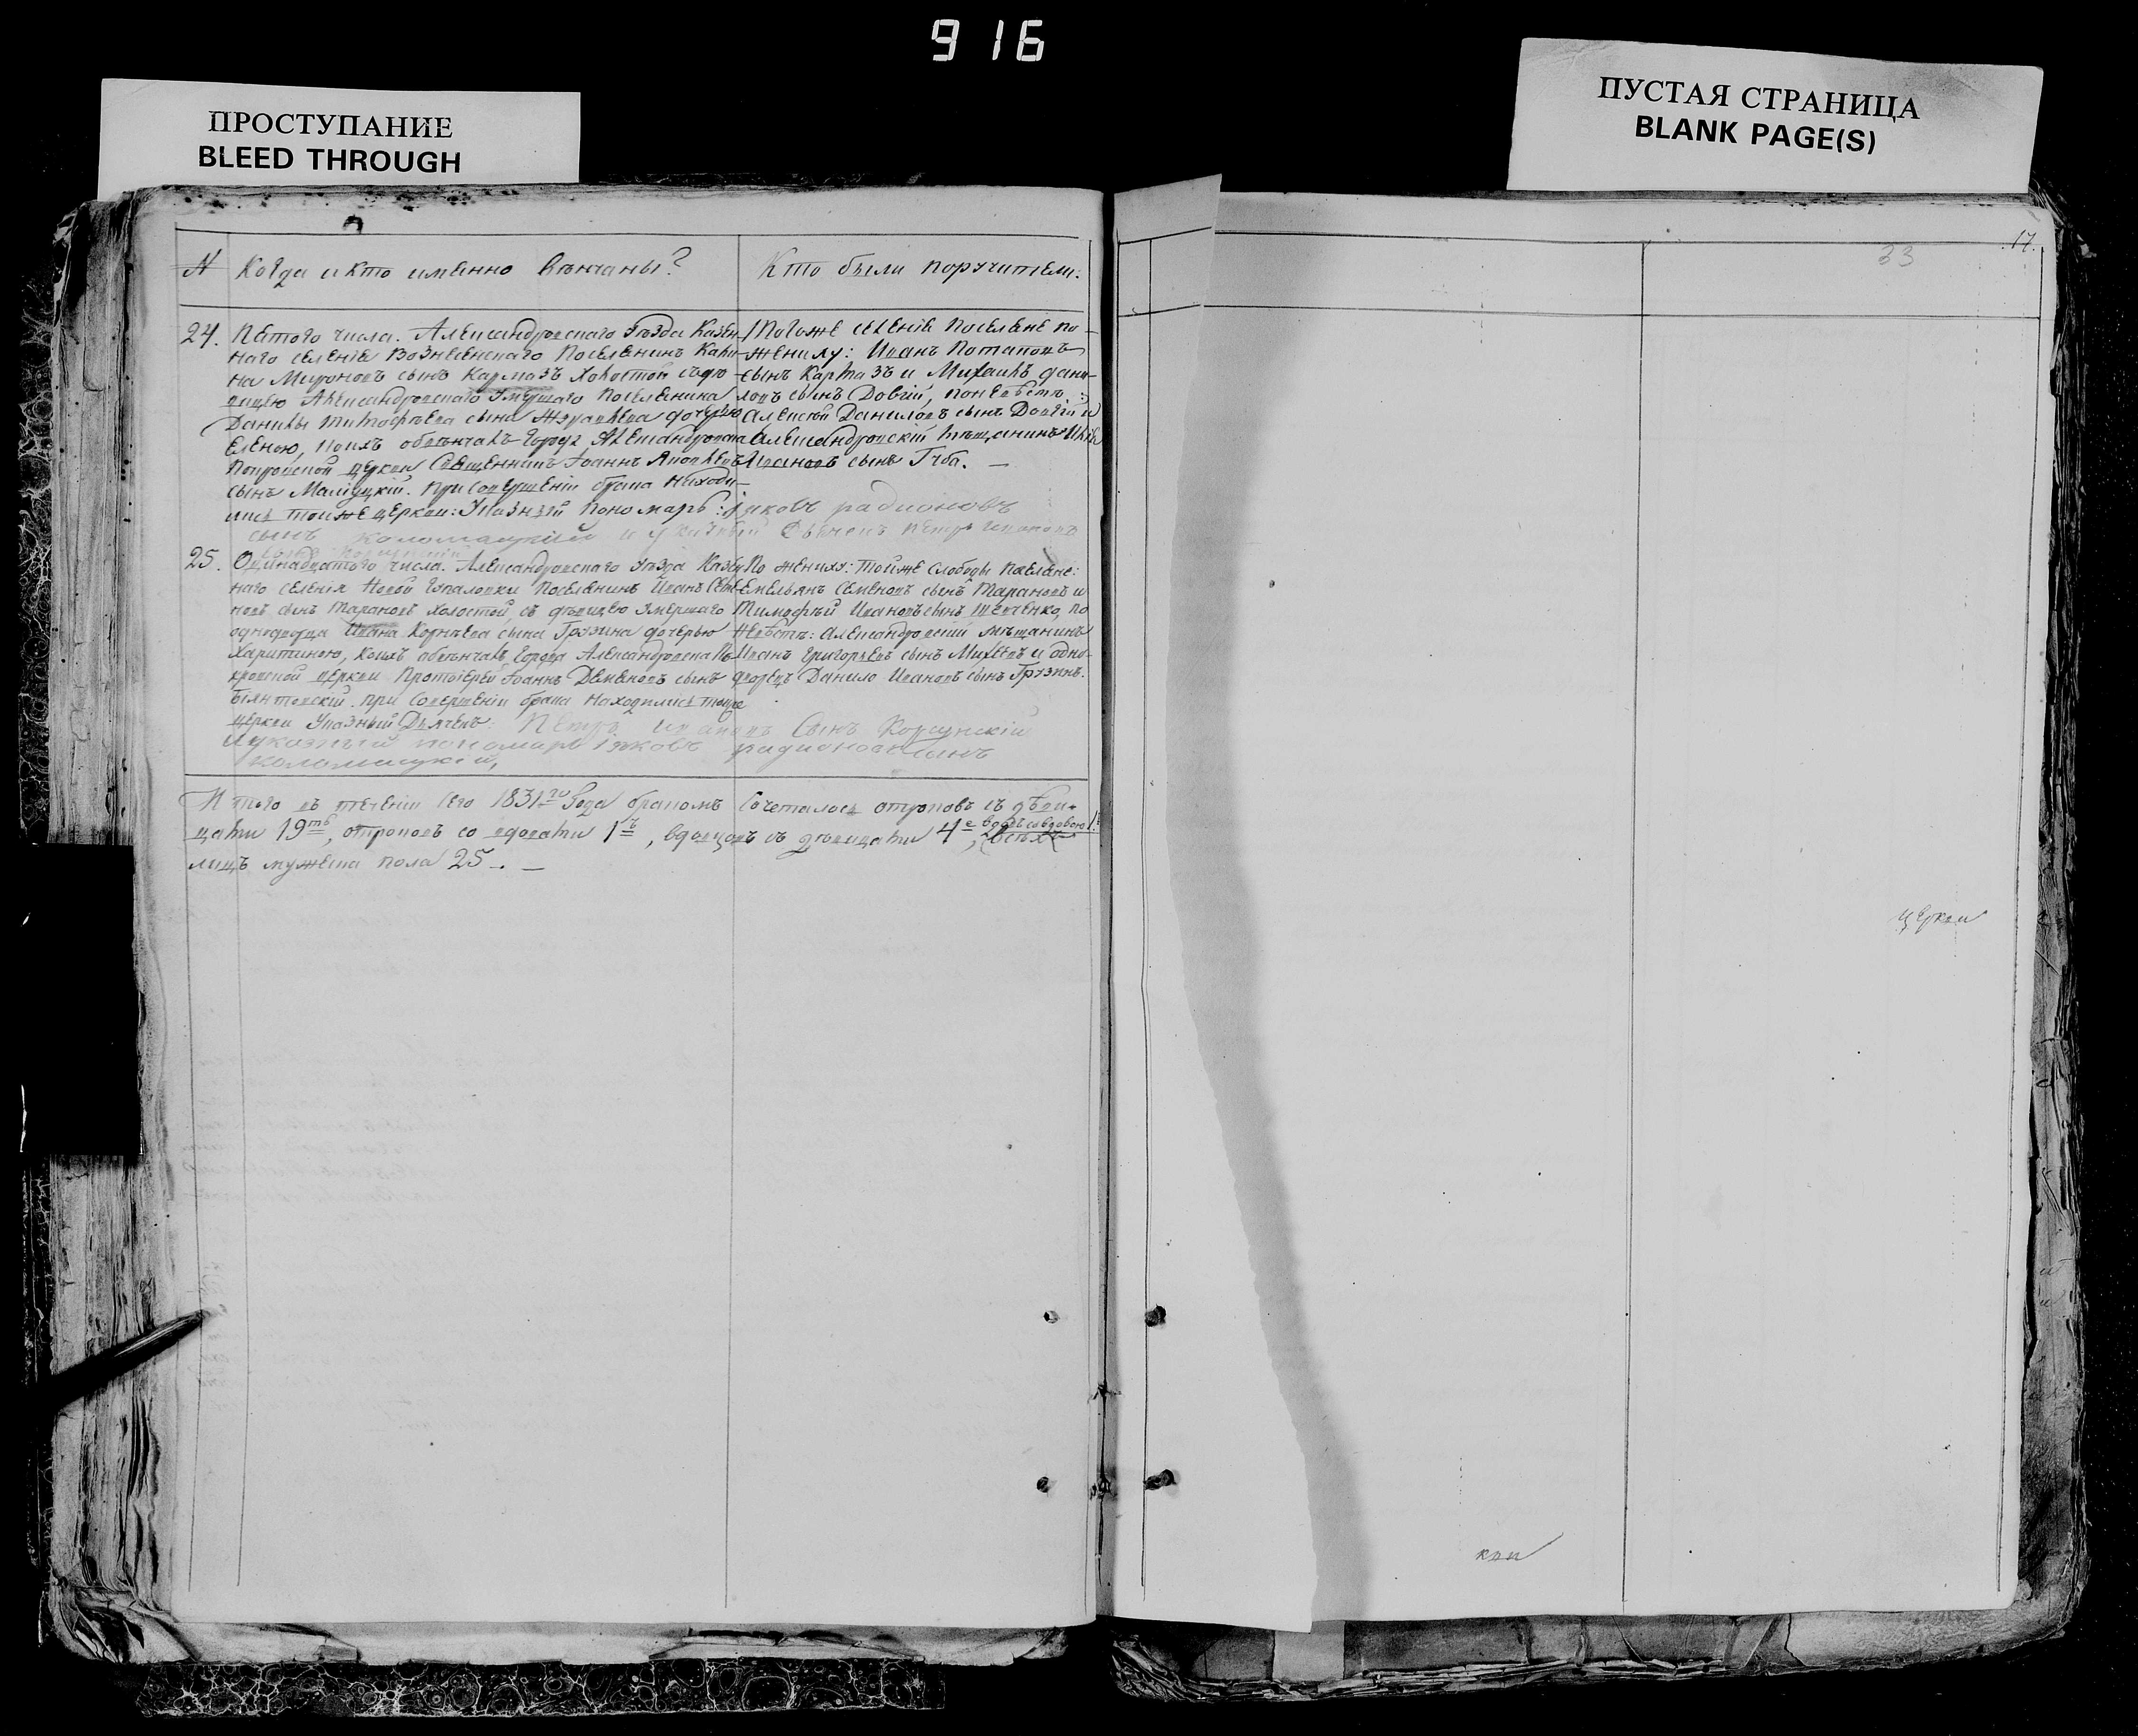 916
ПРОСТУПАНИЕ
BLEED THROUGH
ПУСТАЯ СТРАНИЦА
BLANK PAGE(S)
№ Когда и кто именно вѣнчаны?
Кто были поручители.
24. Пятого числа. Александровскаго уѣзда Казен-
наго селенія Вознесенскаго поселенинъ
на Мироновъ сынъ Кармазъ холостой съ дѣ-
вицею Александровскаго умершаго поселенина
Данилы сына дочерью
Еленою, коихъ обвѣнчалъ города Александровска
Покровской церкви Священникъ Іоаннъ Яковлевъ
сынъ При совершеніи брака находи-
лись тойже церкви: Указный пономарь: Іяковъ радионовъ
сынъ коломацкій и указный Дьячекъ Петръ Ивановъ
сынъ Корсунскій
Тогоже селенія поселяне по
жениху: Иванъ Потаповъ
сынъ Кармазъ и Михаилъ Дани-
ловъ сынъ Довгій, по невѣстѣ:
Алексѣй Даниловъ сынъ Довгій и
Александровскій мѣщанинъ
Ивановъ сынъ Губа. —
25. Одинадцатого числа. Александровскаго уѣзда Казен-
наго селенія Новой Гупаловки поселенинъ Иванъ Семе-
новъ сынъ Тарановъ холостой, съ дѣвицею умершаго
однодворца Ивана Корнѣева сына Грузина дочерью
Харитиною, коихъ обвѣнчалъ города Александровска По-
кровской церкви Протоіерей Іоаннъ сынъ
При совершеніи брака находились тойже
церкви Указный Дьячекъ: Петръ Ивановъ Сынъ Корсунскій
и указный пономарь Іяковъ радионовъ сынъ
коломацкій,
По жениху: тойже слободы поселяне:
Емельянъ Семеновъ сынъ Тарановъ и
Тимофѣй Ивановъ сынъ Шевченко, по
невѣстѣ: Александровскій мѣщанинъ
Иванъ Григорьевъ сынъ Михѣевъ и одно-
дворецъ Данило Ивановъ сынъ Грузинъ.
Итого въ теченіи сего 1831го года бракомъ сочеталось отроковъ съ дѣви-
цами 19ть, отроковъ со вдовами 1ъ, вдовцовъ съ дѣвицами 4е, вдовъ со вдовою 1. всѣхъ
лицъ мужеска пола 25 —. —
33
17.
церкви
кви